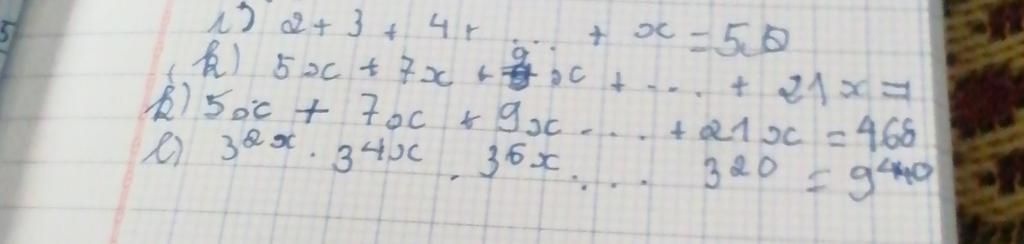 i) 2 + 3 + 4 + ... + x = 560
k) 5x + 7x + 9x + ... + 21x =
k) 5x + 7x + 9x ... + 21x = 468
l) 3^2x . 3^4x . 3^6x .... 320 = 9^440